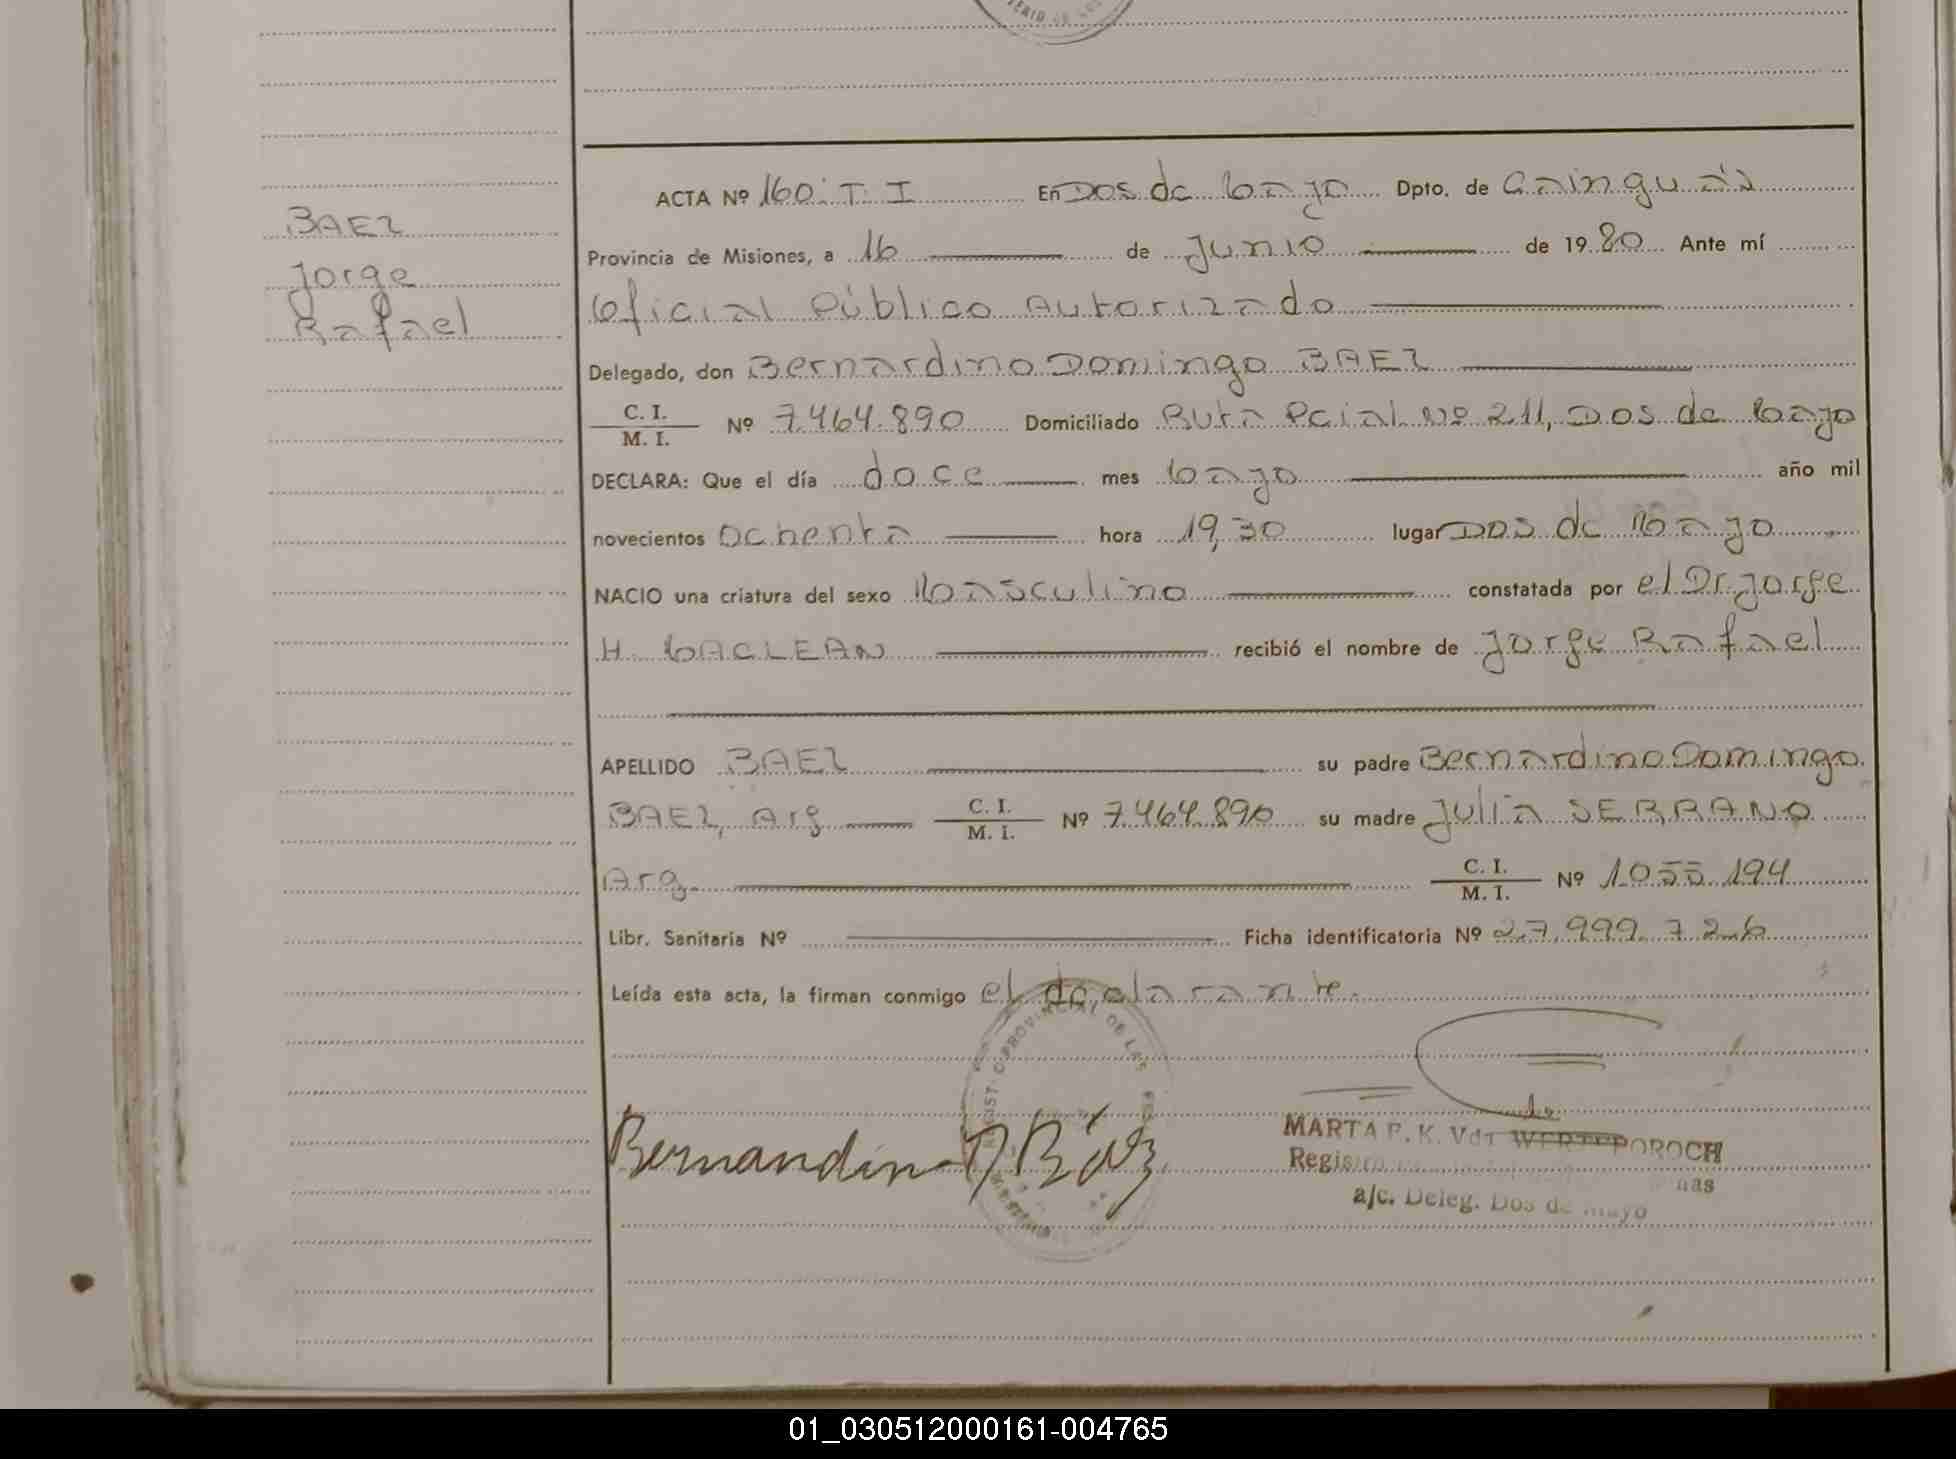 BAEZ
Jorge
Rafael
ACTA Nº 160: T. I En Dos de Mayo Dpto. de Cainguás
Provincia de Misiones, a 16 de Junio de 1980 Ante mí
Oficial Público Autorizado
Delegado, don Bernardino Domingo BAEZ
C. I.
M. I. Nº 7.464.890 Domiciliado Ruta Pcial. Nº 211, Dos de Mayo
DECLARA: Que el día doce mes Mayo año mil
novecientos ochenta hora 19,30 lugar Dos de Mayo
NACIO una criatura del sexo Masculino constatada por el Dr. Jorge
H. MACLEAN recibió el nombre de Jorge Rafael
APELLIDO BAEZ su padre Bernardino Domingo
BAEZ, Arg C. I.
M. I. Nº 7.464.890 su madre Julia SERRANO
Arg. C. I.
M. I. Nº 1.055.194
Libr. Sanitaria Nº Ficha identificatoria Nº 27.999.726
Leída esta acta, la firman conmigo el declarante.
PROVINCIAL DE LAS
Bernardino D Báez
MARTA F. K. Vda WERTEPOROCH
a/c. Deleg. Dos de Mayo
01_030512000161-004765